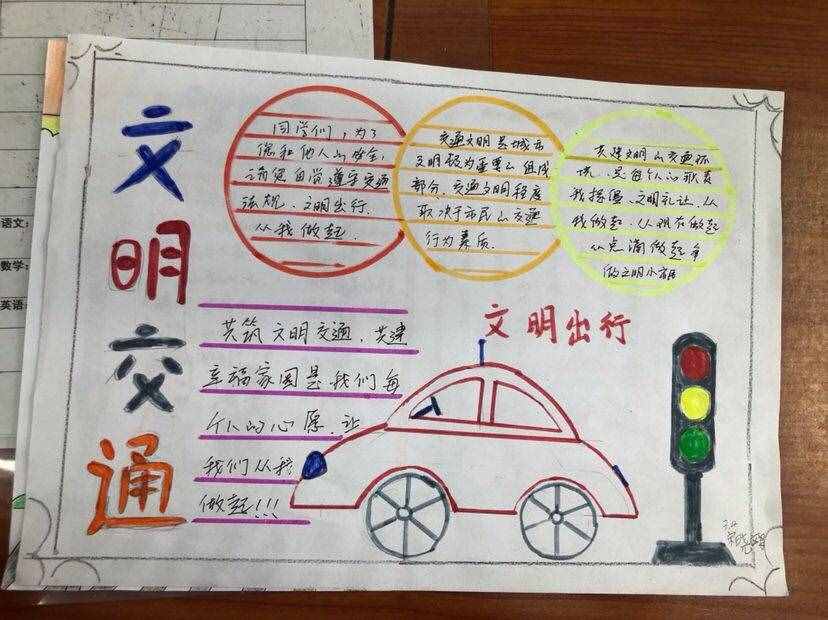 语文:
数学:
英语:
文
明
交
通
同学们,为了
您和他人的安全,
请您自觉遵守交通
法规、文明出行.
从我做起.
交通文明是城市
文明极为重要的组成
部分、交通文明程度
取决于市民的交通
行为素质.
共建文明的交通环
境、是每个人的职责
我提倡、文明礼让、从
我做起、从现在做起
从点滴做起争
做文明小
共筑文明交通、共建
幸福家园是我们每
个人的心愿.让
我们从我
做起!!!
文明出行